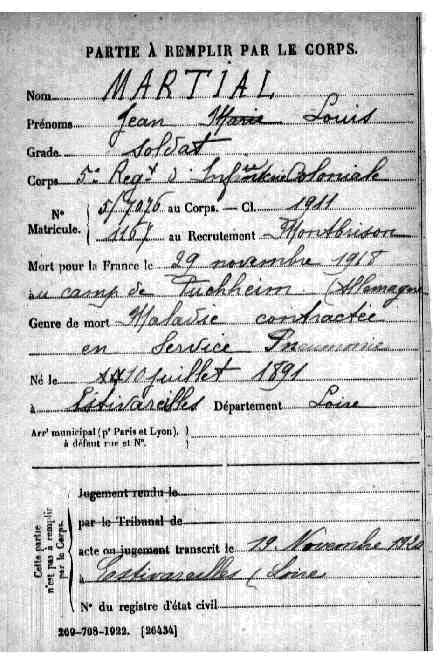 PARTIE À REMPLIR PAR LE CORPS.
Nom MARTIAL
Prénoms Jean Marie Louis
Grade soldat
Corps 5e Regt d'Infrie Coloniale
N° Matricule. 5/7076 au Corps. — Cl. 1911
1167 au Recrutement Montbrison
Mort pour la France le 29 novembre 1918
au camp de (Allemagne
Genre de mort Maladie contractée
en service Pneumonie
Né le 10 juillet 1891
à Estivareilles Département Loire
Arrt municipal (pr Paris et Lyon),
à défaut rue et N°.
Cette partie n'est pas à remplir par le Corps.
Jugement rendu le
par le Tribunal de
acte ou jugement transcrit le 19 Novembre 1920
à Estivareilles (Loire
N° du registre d'état civil
269-708-1922. [26434]